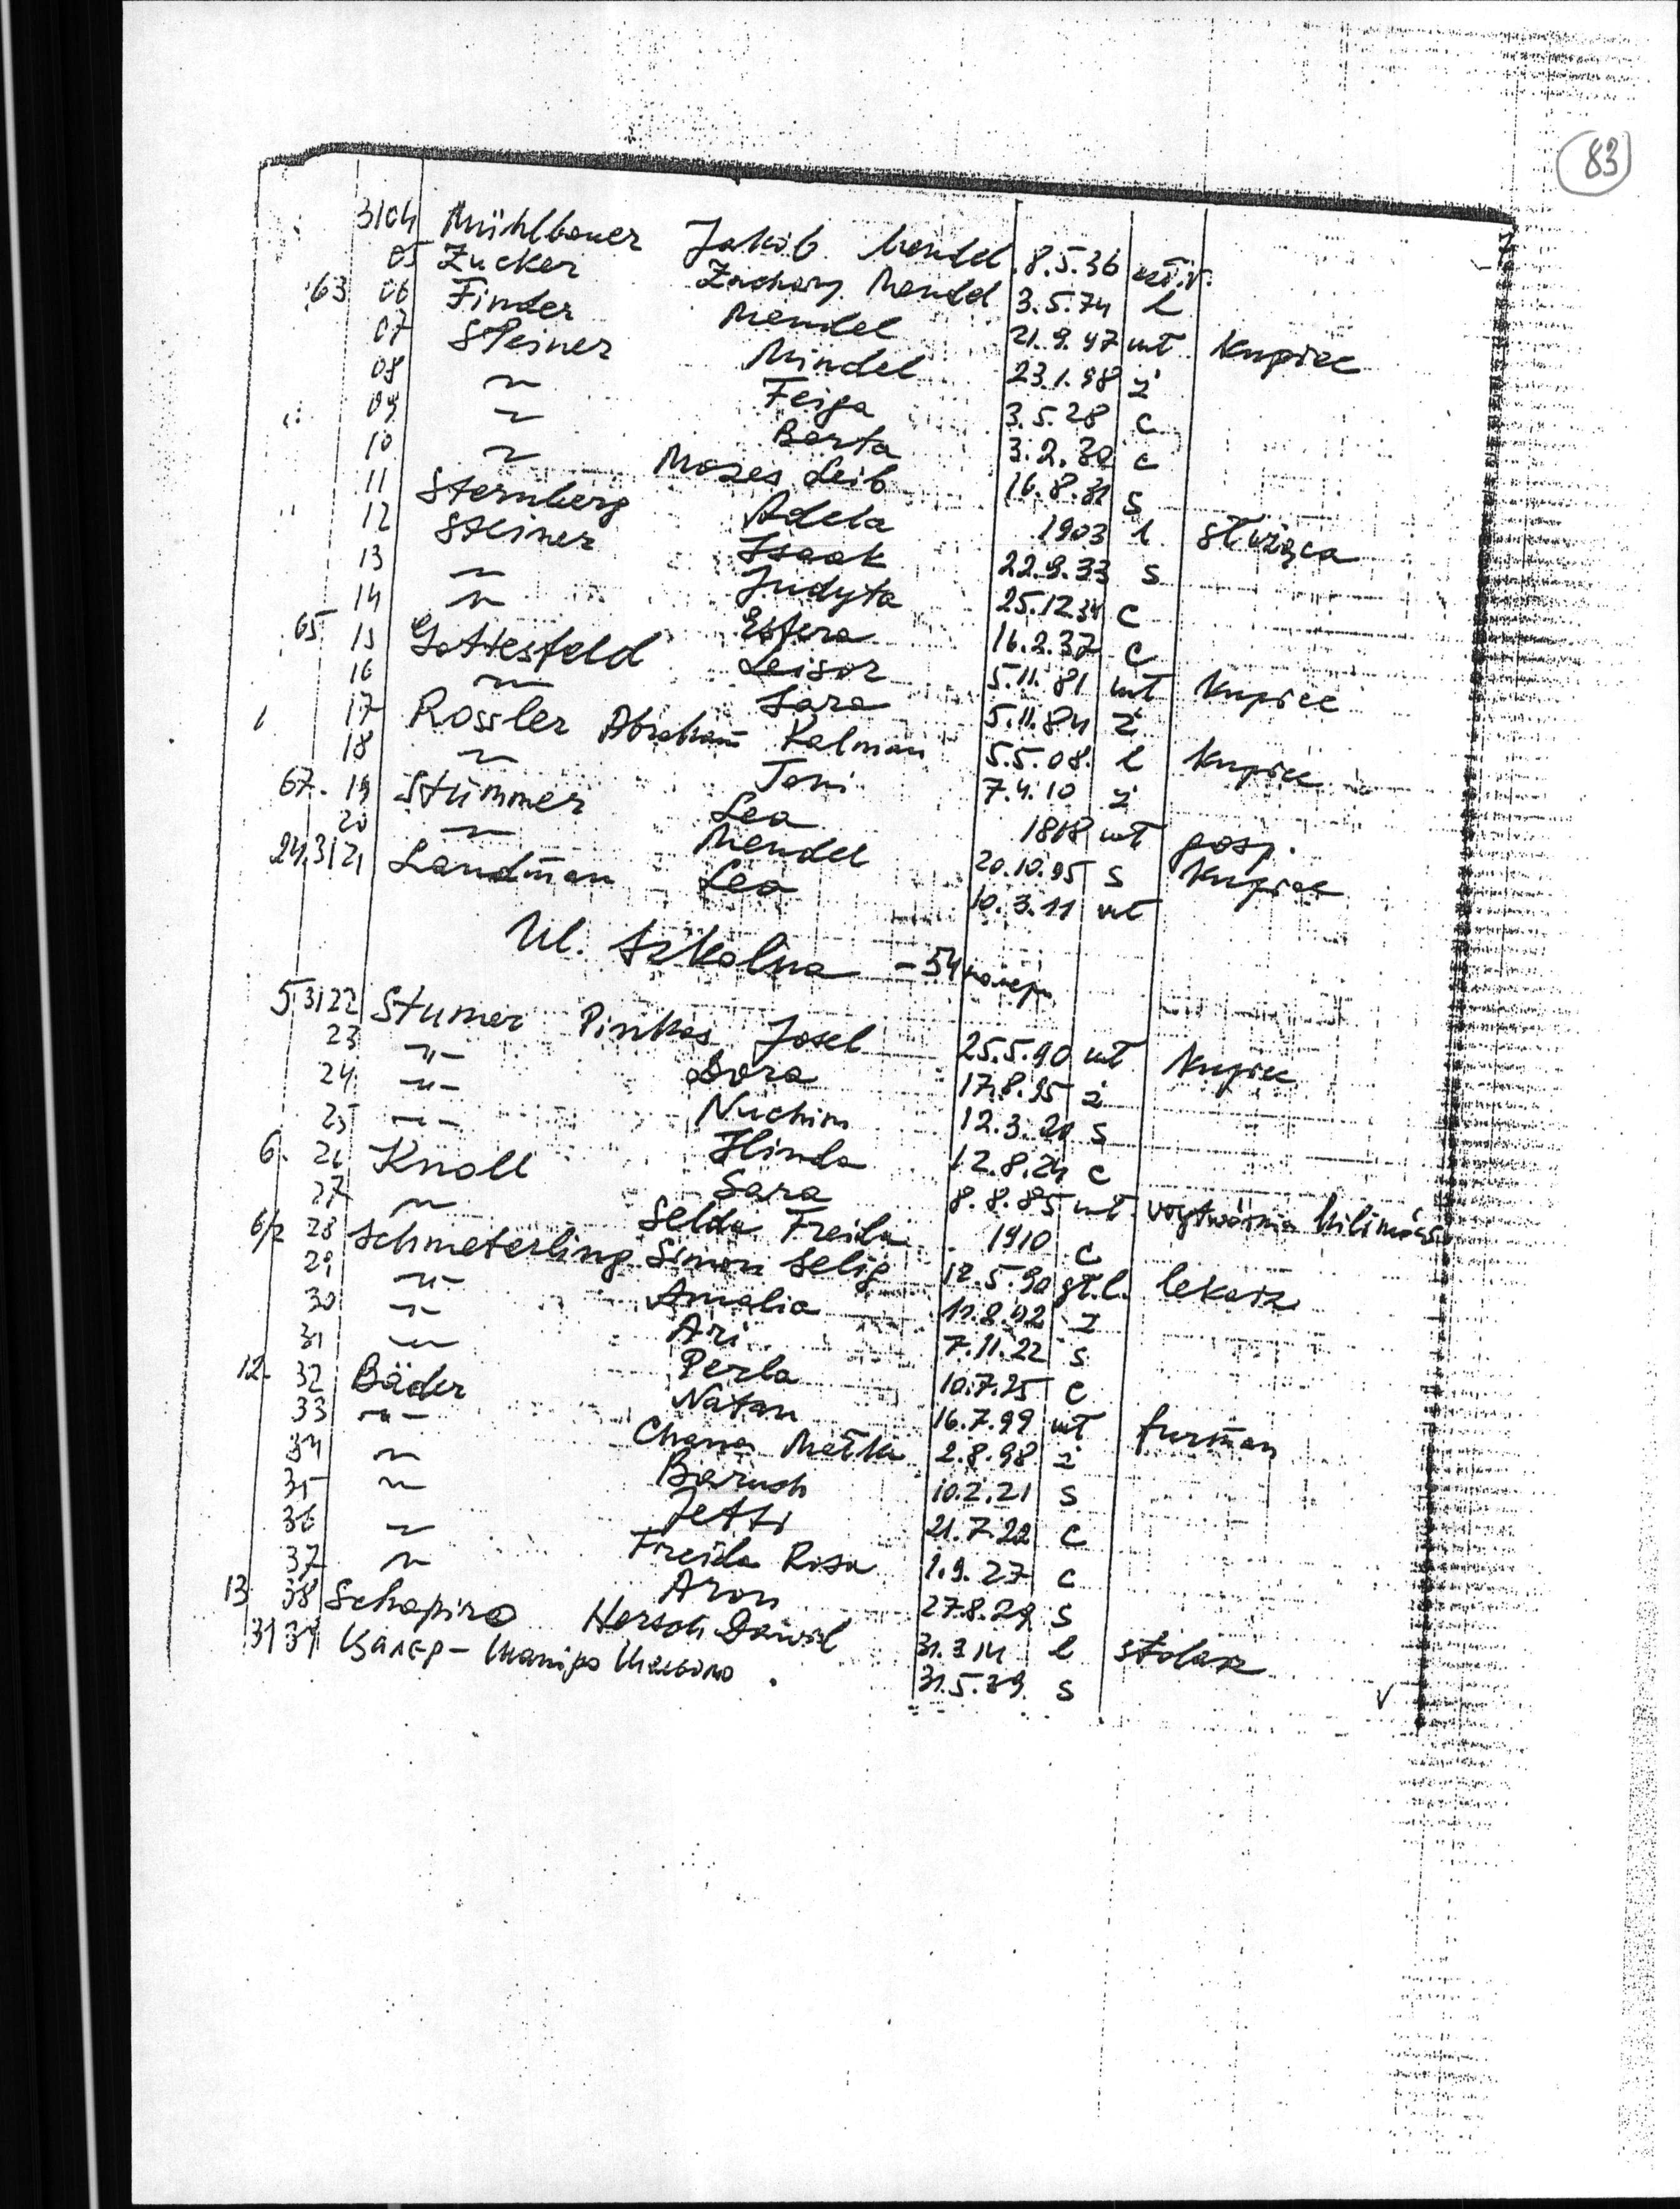 83
3104 Mühlbauer Jakób Mendel 8.5.36
05 Zucker Zachary Mendel 3.5.74 l
63 06 Finder Mendel 21.9.97 mł kupiec
07 Steiner Mindel 23.1.98 ż
08 " Feiga 3.5.28 c
09 " Berta 3.2.30 c
10 " Mozes Leib 16.8.31 s
11 Sternberg Adela 1903 l służąca
12 Steiner Isaak 22.9.33 s
13 " Judyta 25.12.34 c
14 " Estera 16.2.37 c
65 15 Gottesfeld Leisor 5.11.81 mł kupiec
16 " Sara 5.11.84 ż
17 Rossler Abraham Kalman 5.5.08. l kupiec
18 " Toni 7.4.10 ż
67. 19 Stummer Lea 1868 mł gosp.
20 " Mendel 20.10.95 s kupiec
24. 3121 Landman Lea 10.3.11 mł
Ul. Szkolna - 54
5 3122 Stumer Pinkas Josel 25.5.90 mł kupiec
23 -"- Dora 17.8.95 ż
24 -"- Nuchim 12.3.20 s
25 -"- Hinda 12.8.24 c
6. 26 Knoll Sara 8.8.85 mł wytwórnia kilimów
27 " Selda Freida 1910 c
6/2 28 Schmeterling Simon Selig 12.5.90 gł.l. lekarz
29 -"- Amalia 11.2.92 ż
30 -"- Ari 7.11.22 s
31 -"- Perla 10.7.25 c
12. 32 Bäder Natan 16.7.99 mł furman
33 -"- Chana Matka 2.8.98 ż
34 " Baruch 10.2.21 s
35 " Jetti 21.7.22 c
36 " Freida Rosa 1.9.27 c
37 " Aron 27.8.29 s
13 38 Schapiro Hersch Dawid 31.3.14 l stolarz
3139 Цалер - Шапіро 31.5.39. s